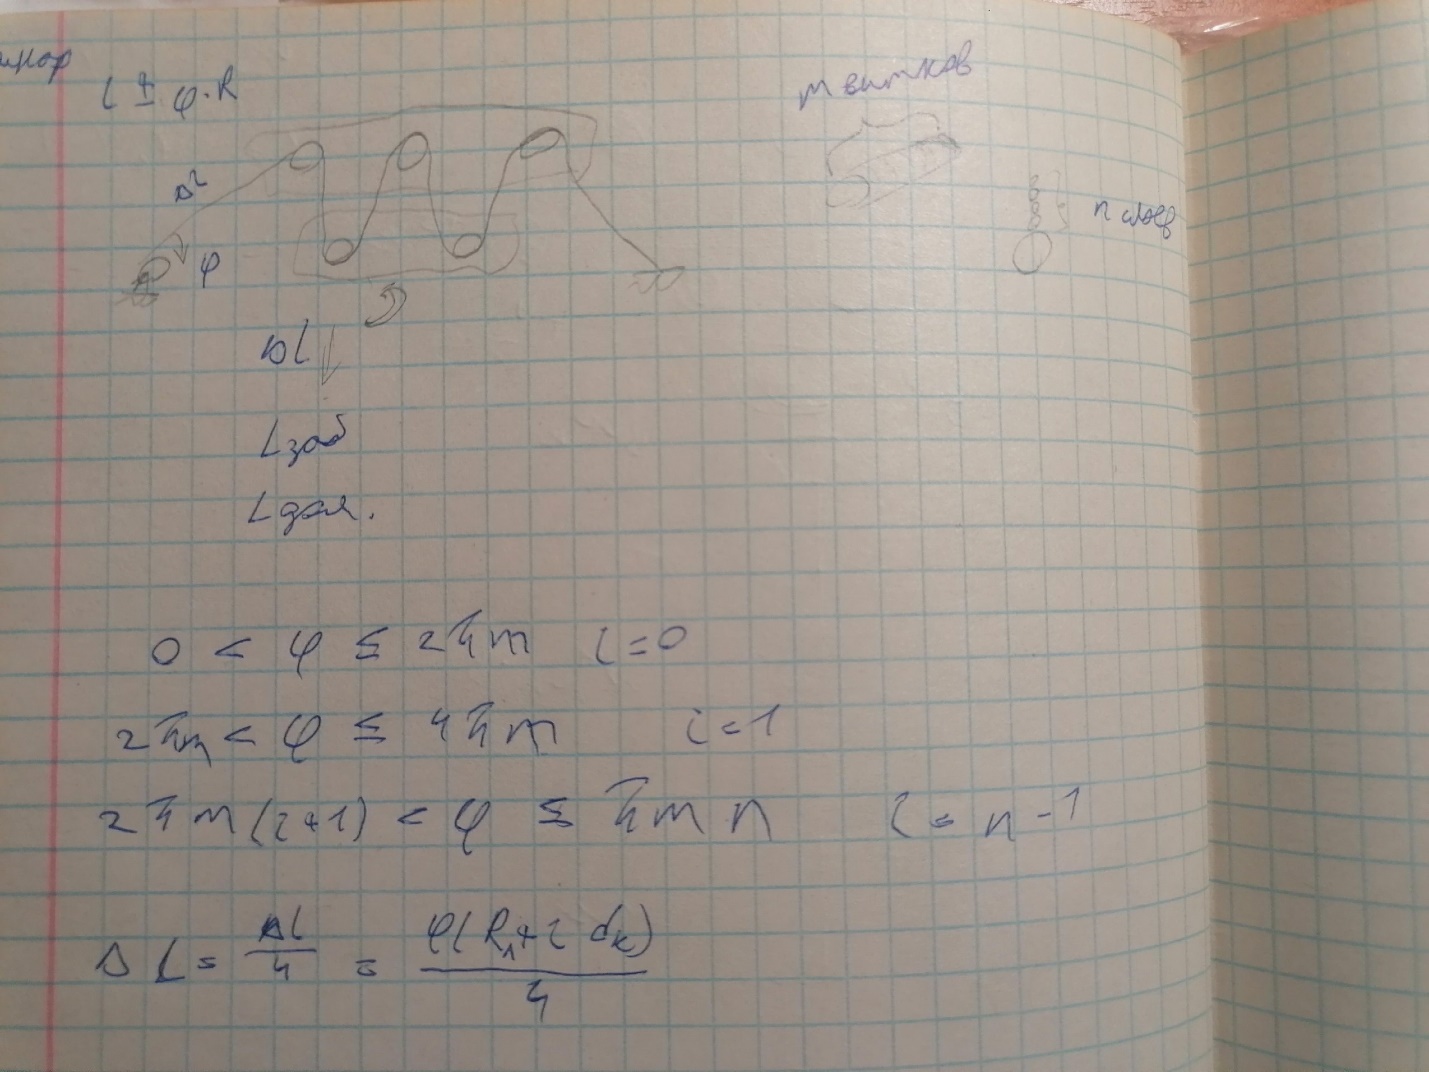 l ± φ·R
m витков
Δl
φ
n слоев
ΔL
Lзаб
Lдол.
0 < φ ≤ 2πm i=0
2πm < φ ≤ 4πm i=1
2πm(i+1) < φ ≤ πmn i=n-1
ΔL = Δl/4 = φ(Rл+i dк)/4